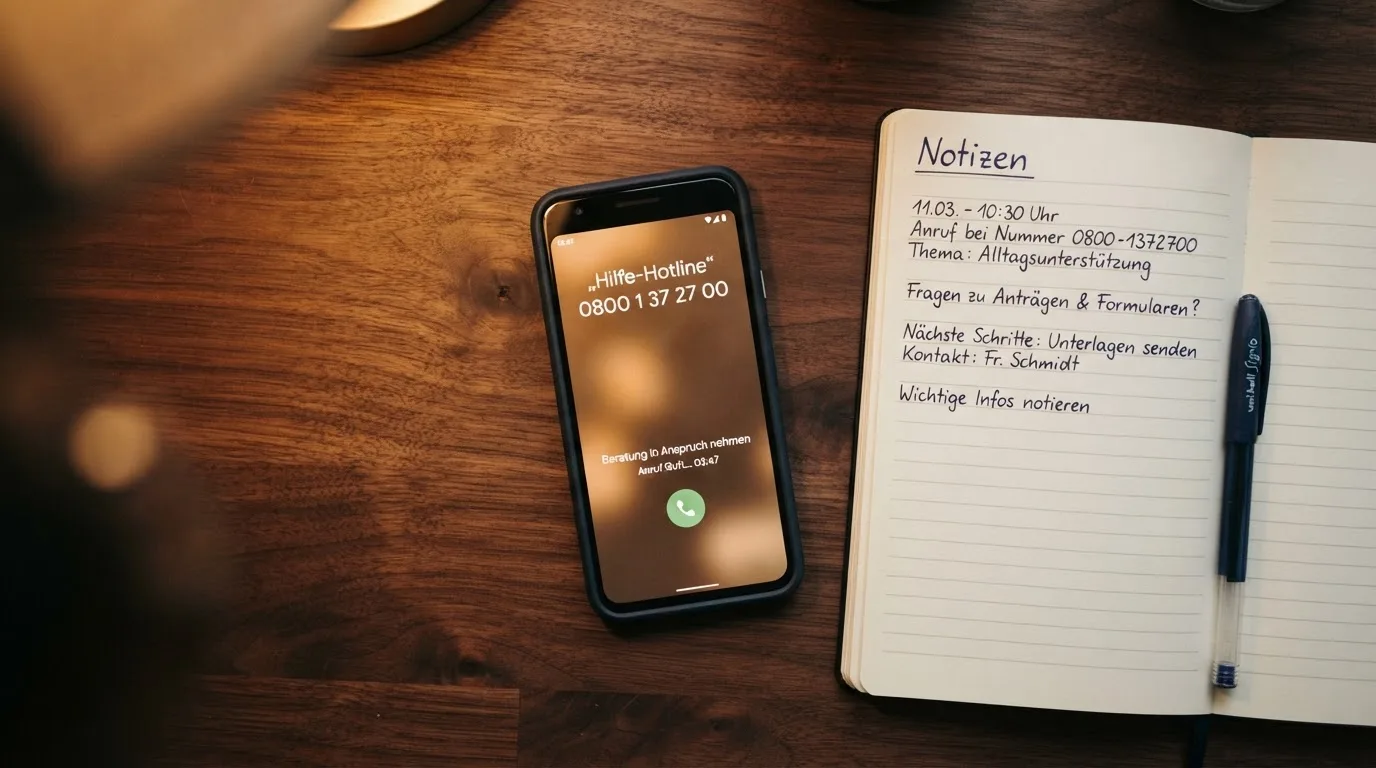 „Hilfe-Hotline“
0800 1 37 27 00
Beratung in Anspruch nehmen
Anruf
Notizen
11.03. - 10:30 Uhr
Anruf bei Nummer 0800-1372700
Thema: Alltagsunterstützung
Fragen zu Anträgen & Formularen?
Nächste Schritte: Unterlagen senden
Kontakt: Fr. Schmidt
Wichtige Infos notieren